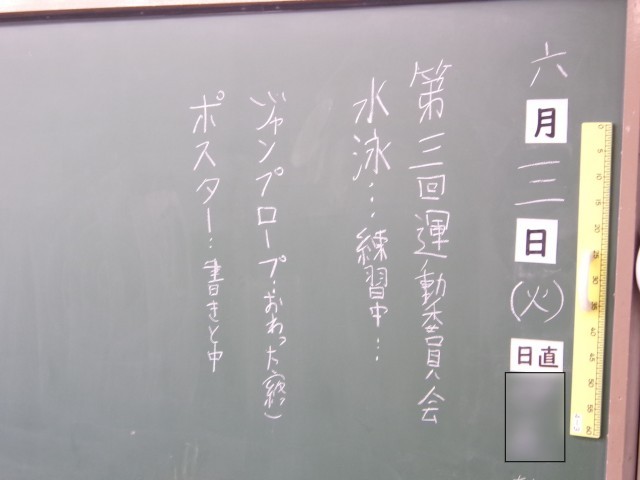 六月三日(火)
日直
第三回運動委員会
水泳…練習中…
ジャンプロープ:おわった(終)
ポスター:書きと中